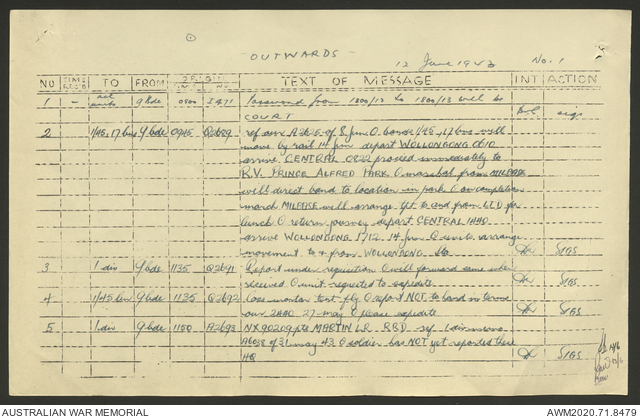 OUTWARDS
12 June 1943 No. 1
NO TIME REC'D TO FROM ORIGIN TIME NO TEXT OF MESSAGE INT ACTION
1 - act units 9 bde 0900 I471 Password from 1800/13 to 1800/13 will be sigs
COURT
2 1/45, 17 bns 9 bde 0945 Q2689 ref our of 8 June O band 1/45 17 bns will
move by rail 14 jun depart WOLLONGONG 0610
arrive CENTRAL 0822 proceed immediately to
R.V. PRINCE ALFRED PARK O marshal from MILBASE
will direct band to location in park O on completion
march MILBASE will arrange tpt to and from LTD for
lunch O return journey depart CENTRAL 1440
arrive WOLLONGONG 1712 14 jun O units arrange
movement to & from WOLLONGONG SIGS
3 1 div 9 bde 1135 Q2691 Report under requisition O will forward same when
received O unit requested to expedite SIGS
4 1/45 bn 9 bde 1135 Q2692 Case mortar test fly O report NOT to hand in terms
our 2880 27 may O please expedite SIGS
5 1 div 9 bde 1150 A2693 NX90209 pte MARTIN L.R. RRD ref 1 div memo
A6038 of 31 may 43 O soldier has NOT yet reported there
HQ SIGS
AUSTRALIAN WAR MEMORIAL
AWM2020.71.8479